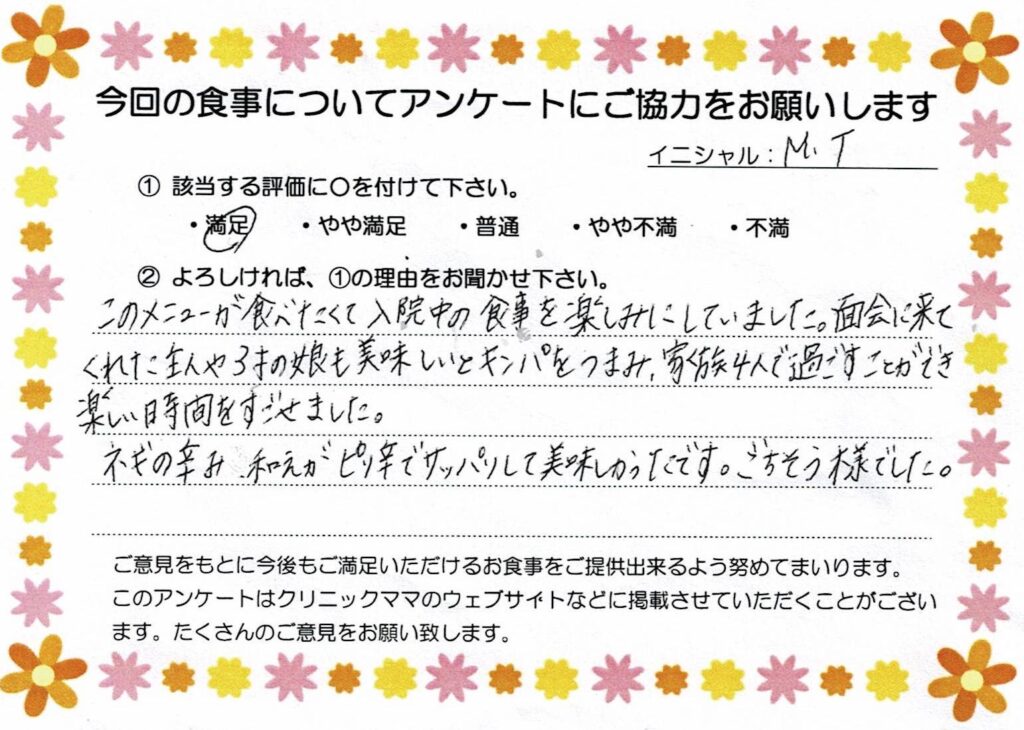 今回の食事についてアンケートにご協力をお願いします
イニシャル：M.T
① 該当する評価に〇を付けて下さい。
・満足 ・やや満足 ・普通 ・やや不満 ・不満
② よろしければ、①の理由をお聞かせ下さい。
このメニューが食べたくて入院中の食事を楽しみにしていました。面会に来て
くれた主人や3才の娘も美味しいとキンパをつまみ、家族4人で過ごすことができ
楽しい時間をすごせました。
ネギの辛み、和えがピリ辛でサッパリして美味しかったです。ごちそう様でした。
ご意見をもとに今後もご満足いただけるお食事をご提供出来るよう努めてまいります。
このアンケートはクリニックママのウェブサイトなどに掲載させていただくことがござい
ます。たくさんのご意見をお願い致します。